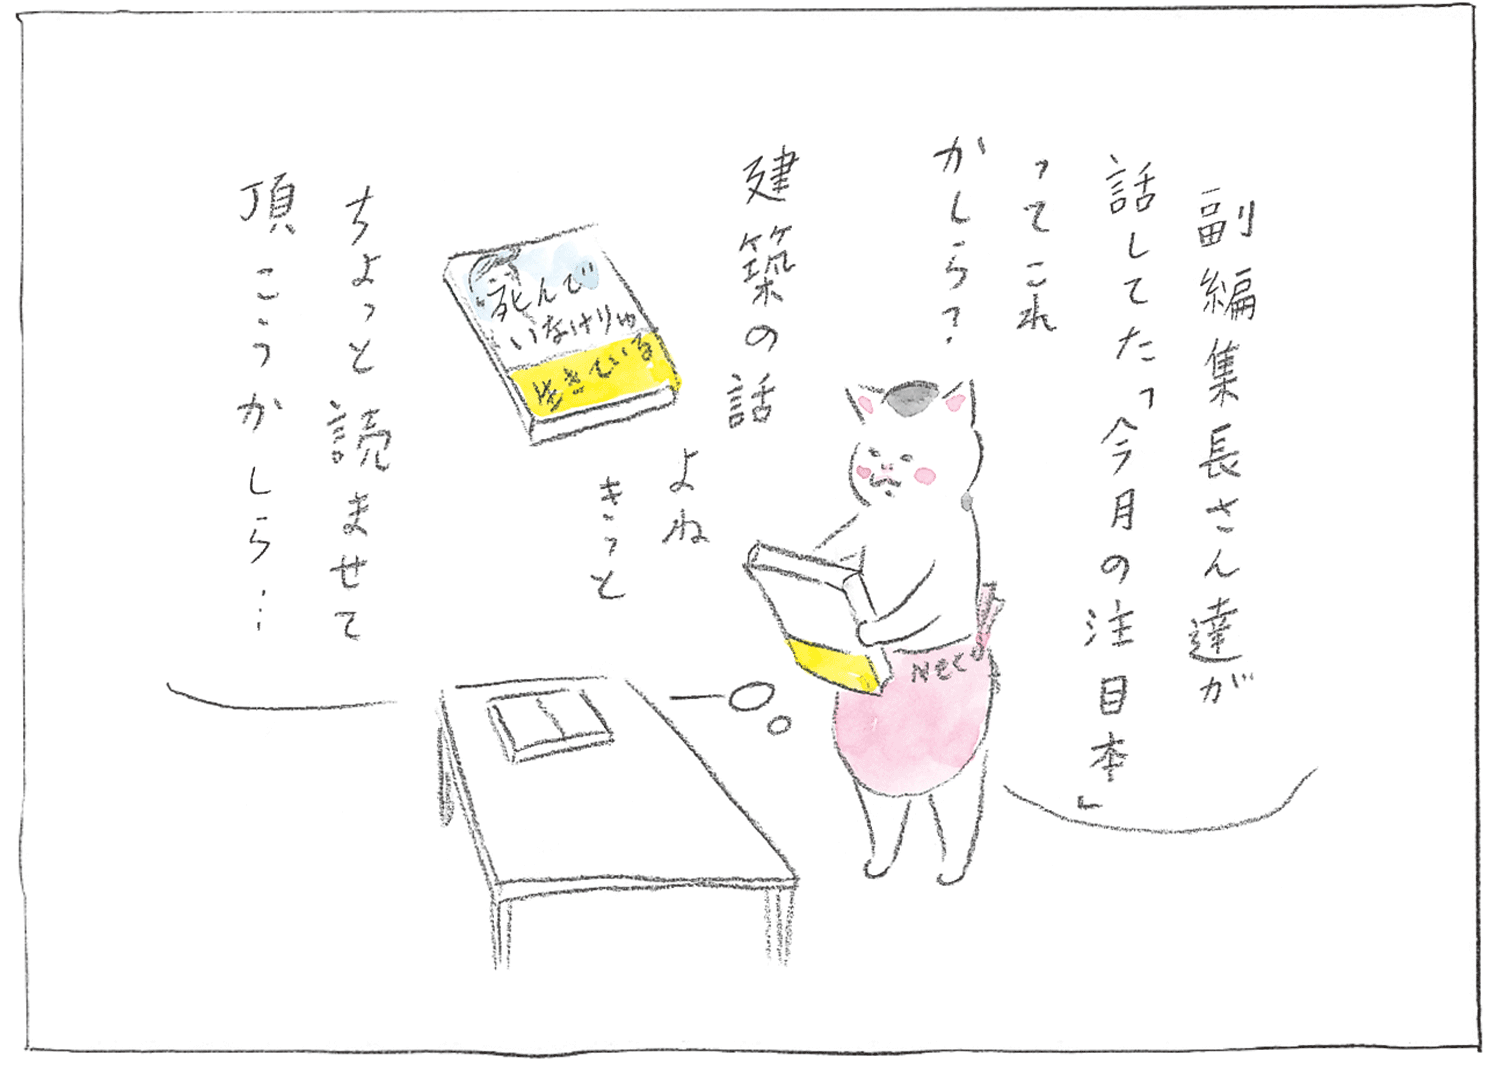 副編集長さん達が
話してた「今月の注目本」
ってこれ
かしら？
建築の話
よね
きっと
死んで
いなけりゃ
生きている
ちょっと読ませて
頂こうかしら…
Neco